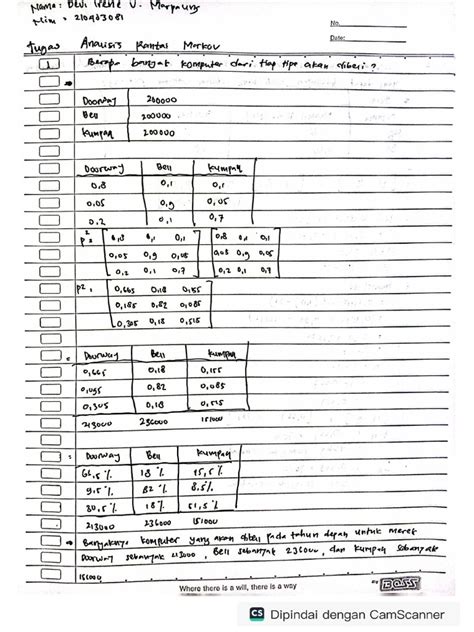 Nama : Devi Irene V. Marpaung
Nim : 210403081
No.
Date:
Tugas Analisis Rantai Markov
1 Berapa banyak komputer dari tiap tipe akan dibeli ?
Doorway 200000
Bell 200000
Kumpaq 200000
Doorway Bell Kumpaq
0,8 0,1 0,1
0,05 0,9 0,05
0,2 0,1 0,7
P² = 0,8 0,1 0,1 0,8 0,1 0,1
0,05 0,9 0,05 0,05 0,9 0,05
0,2 0,1 0,7 0,2 0,1 0,7
P2 = 0,665 0,18 0,155
0,185 0,82 0,085
0,305 0,18 0,515
= Doorway Bell Kumpaq
0,665 0,18 0,155
0,095 0,82 0,085
0,305 0,18 0,515
213000 236000 151000
= Doorway Bell Kumpaq
66,5 % 18 % 15,5 %
9,5 % 82 % 8,5 %
30,5 % 18 % 51,5 %
213000 236000 151000
Banyaknya komputer yang akan dibeli pada tahun depan untuk merek
Doorway sebanyak 213000, Bell sebanyak 236000, dan Kumpaq sebanyak
151000
Where there is a will, there is a way
BOSS
CS Dipindai dengan CamScanner